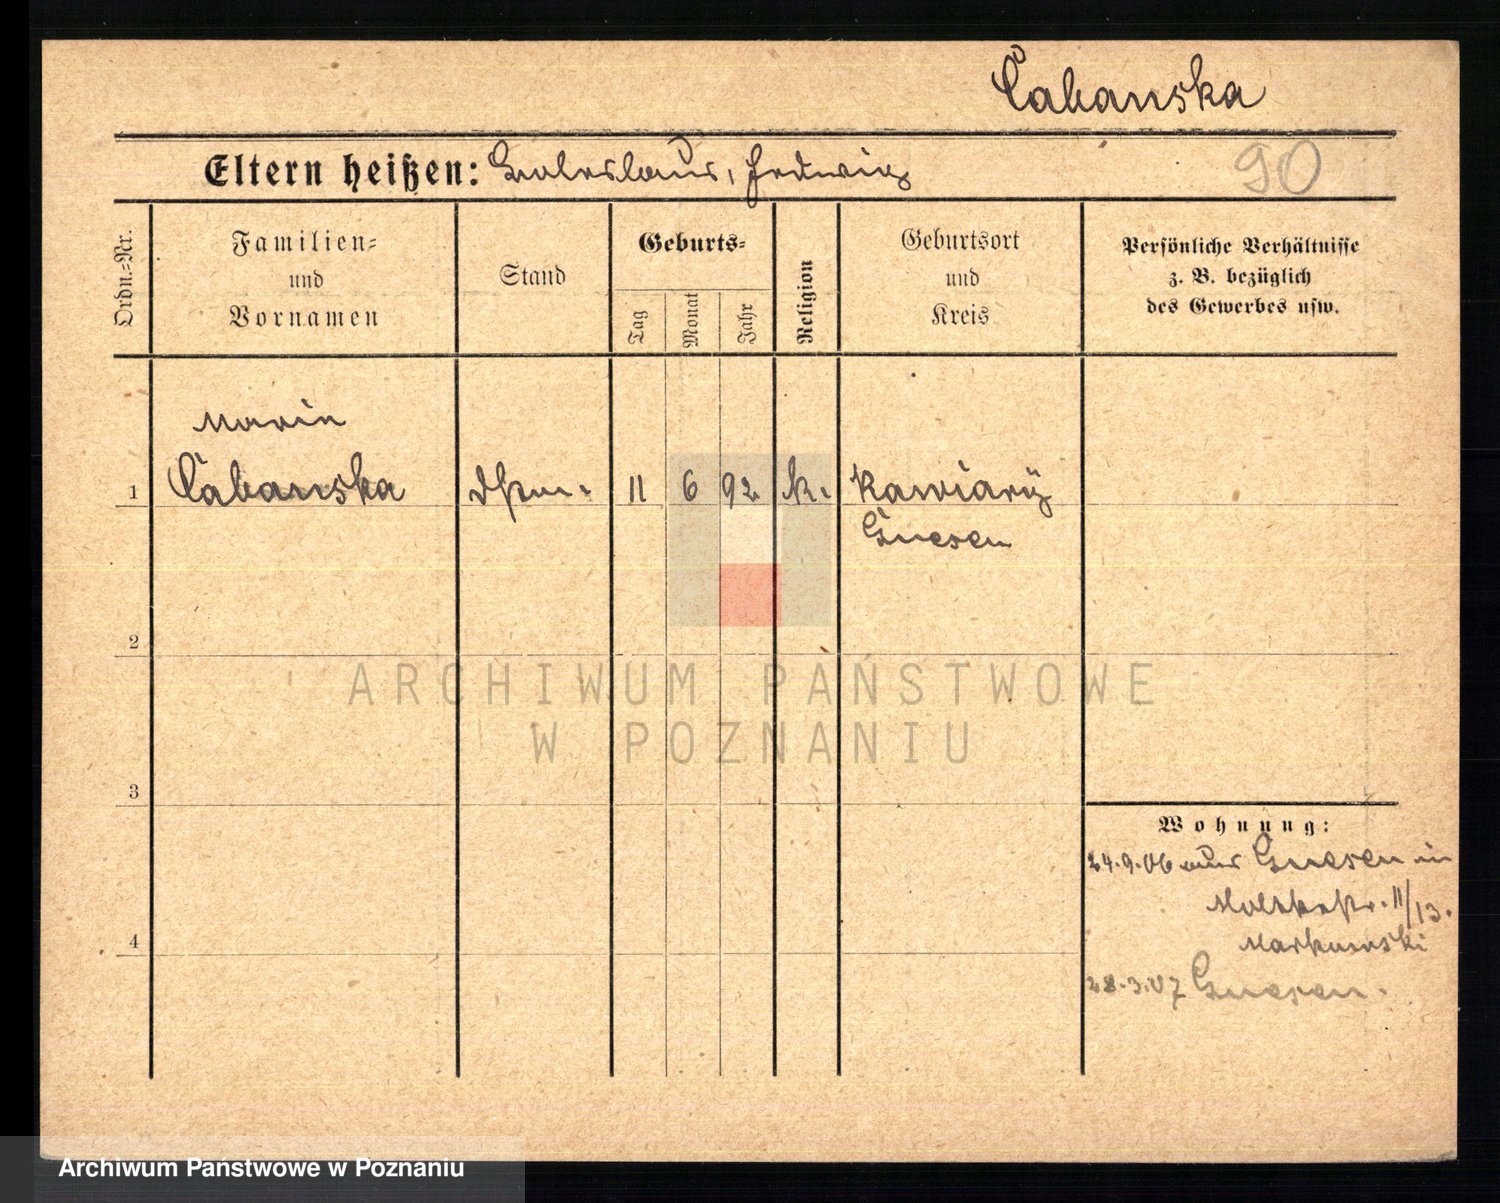 Cabanska
Eltern heißen: Boleslaus, Hedwig
90
Ordn.-Nr.
Familien-
und
Vornamen
Stand
Geburts-
Tag
Monat
Jahr
Religion
Geburtsort
und
Kreis
Persönliche Verhältnisse
z. B. bezüglich
des Gewerbes usw.
Maria
1 Cabanska 11 6 92 k.
Gnesen
2
ARCHIWUM PAŃSTWOWE
W POZNANIU
3
Wohnung:
24.9.06 aus Gnesen in
Moltkestr. 11/13.
4
28.3.07 Gnesen.
Archiwum Państwowe w Poznaniu